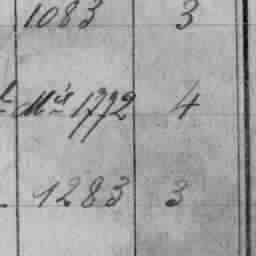 1083 3
1772 4
1283 3